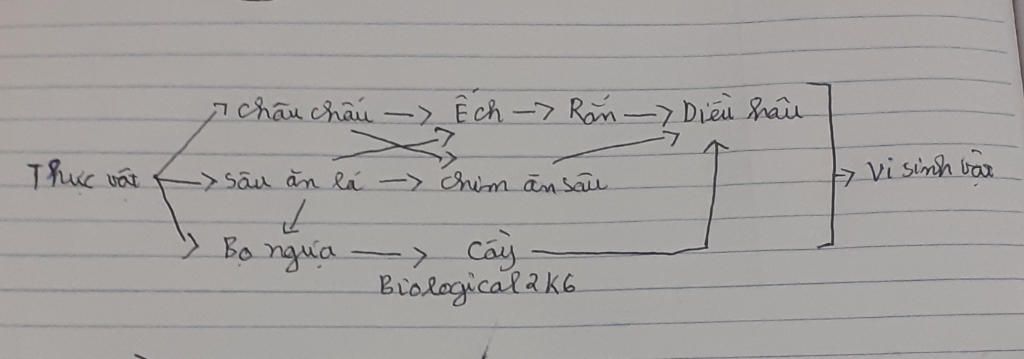 Châu chấu → Ếch → Rắn → Diều hâu
Thực vật → Sâu ăn lá → Chim ăn sâu → Vi sinh vật
Bọ ngựa → Cầy
Biological 2K6